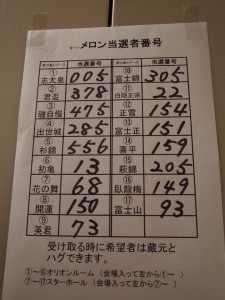 メロン当選者番号
受け取りブース 当選番号 受け取りブース 当選番号
① 志太泉 005 ⑩ 富士錦 305
② 君盃 378 ⑪ 白隠正宗 22
③ 磯自慢 475 ⑫ 正雪 154
④ 出世城 285 ⑬ 富士正 151
⑤ 杉錦 556 ⑭ 喜平 159
⑥ 初亀 13 ⑮ 萩錦 205
⑦ 花の舞 68 ⑯ 臥龍梅 149
⑧ 開運 150 ⑰ 富士山 93
⑨ 英君 73
受け取る時に希望者は蔵元と
ハグできます。
①～⑥オリオンルーム（会場入って左から①～）
⑦～⑰スターホール（会場入って左から⑦～）